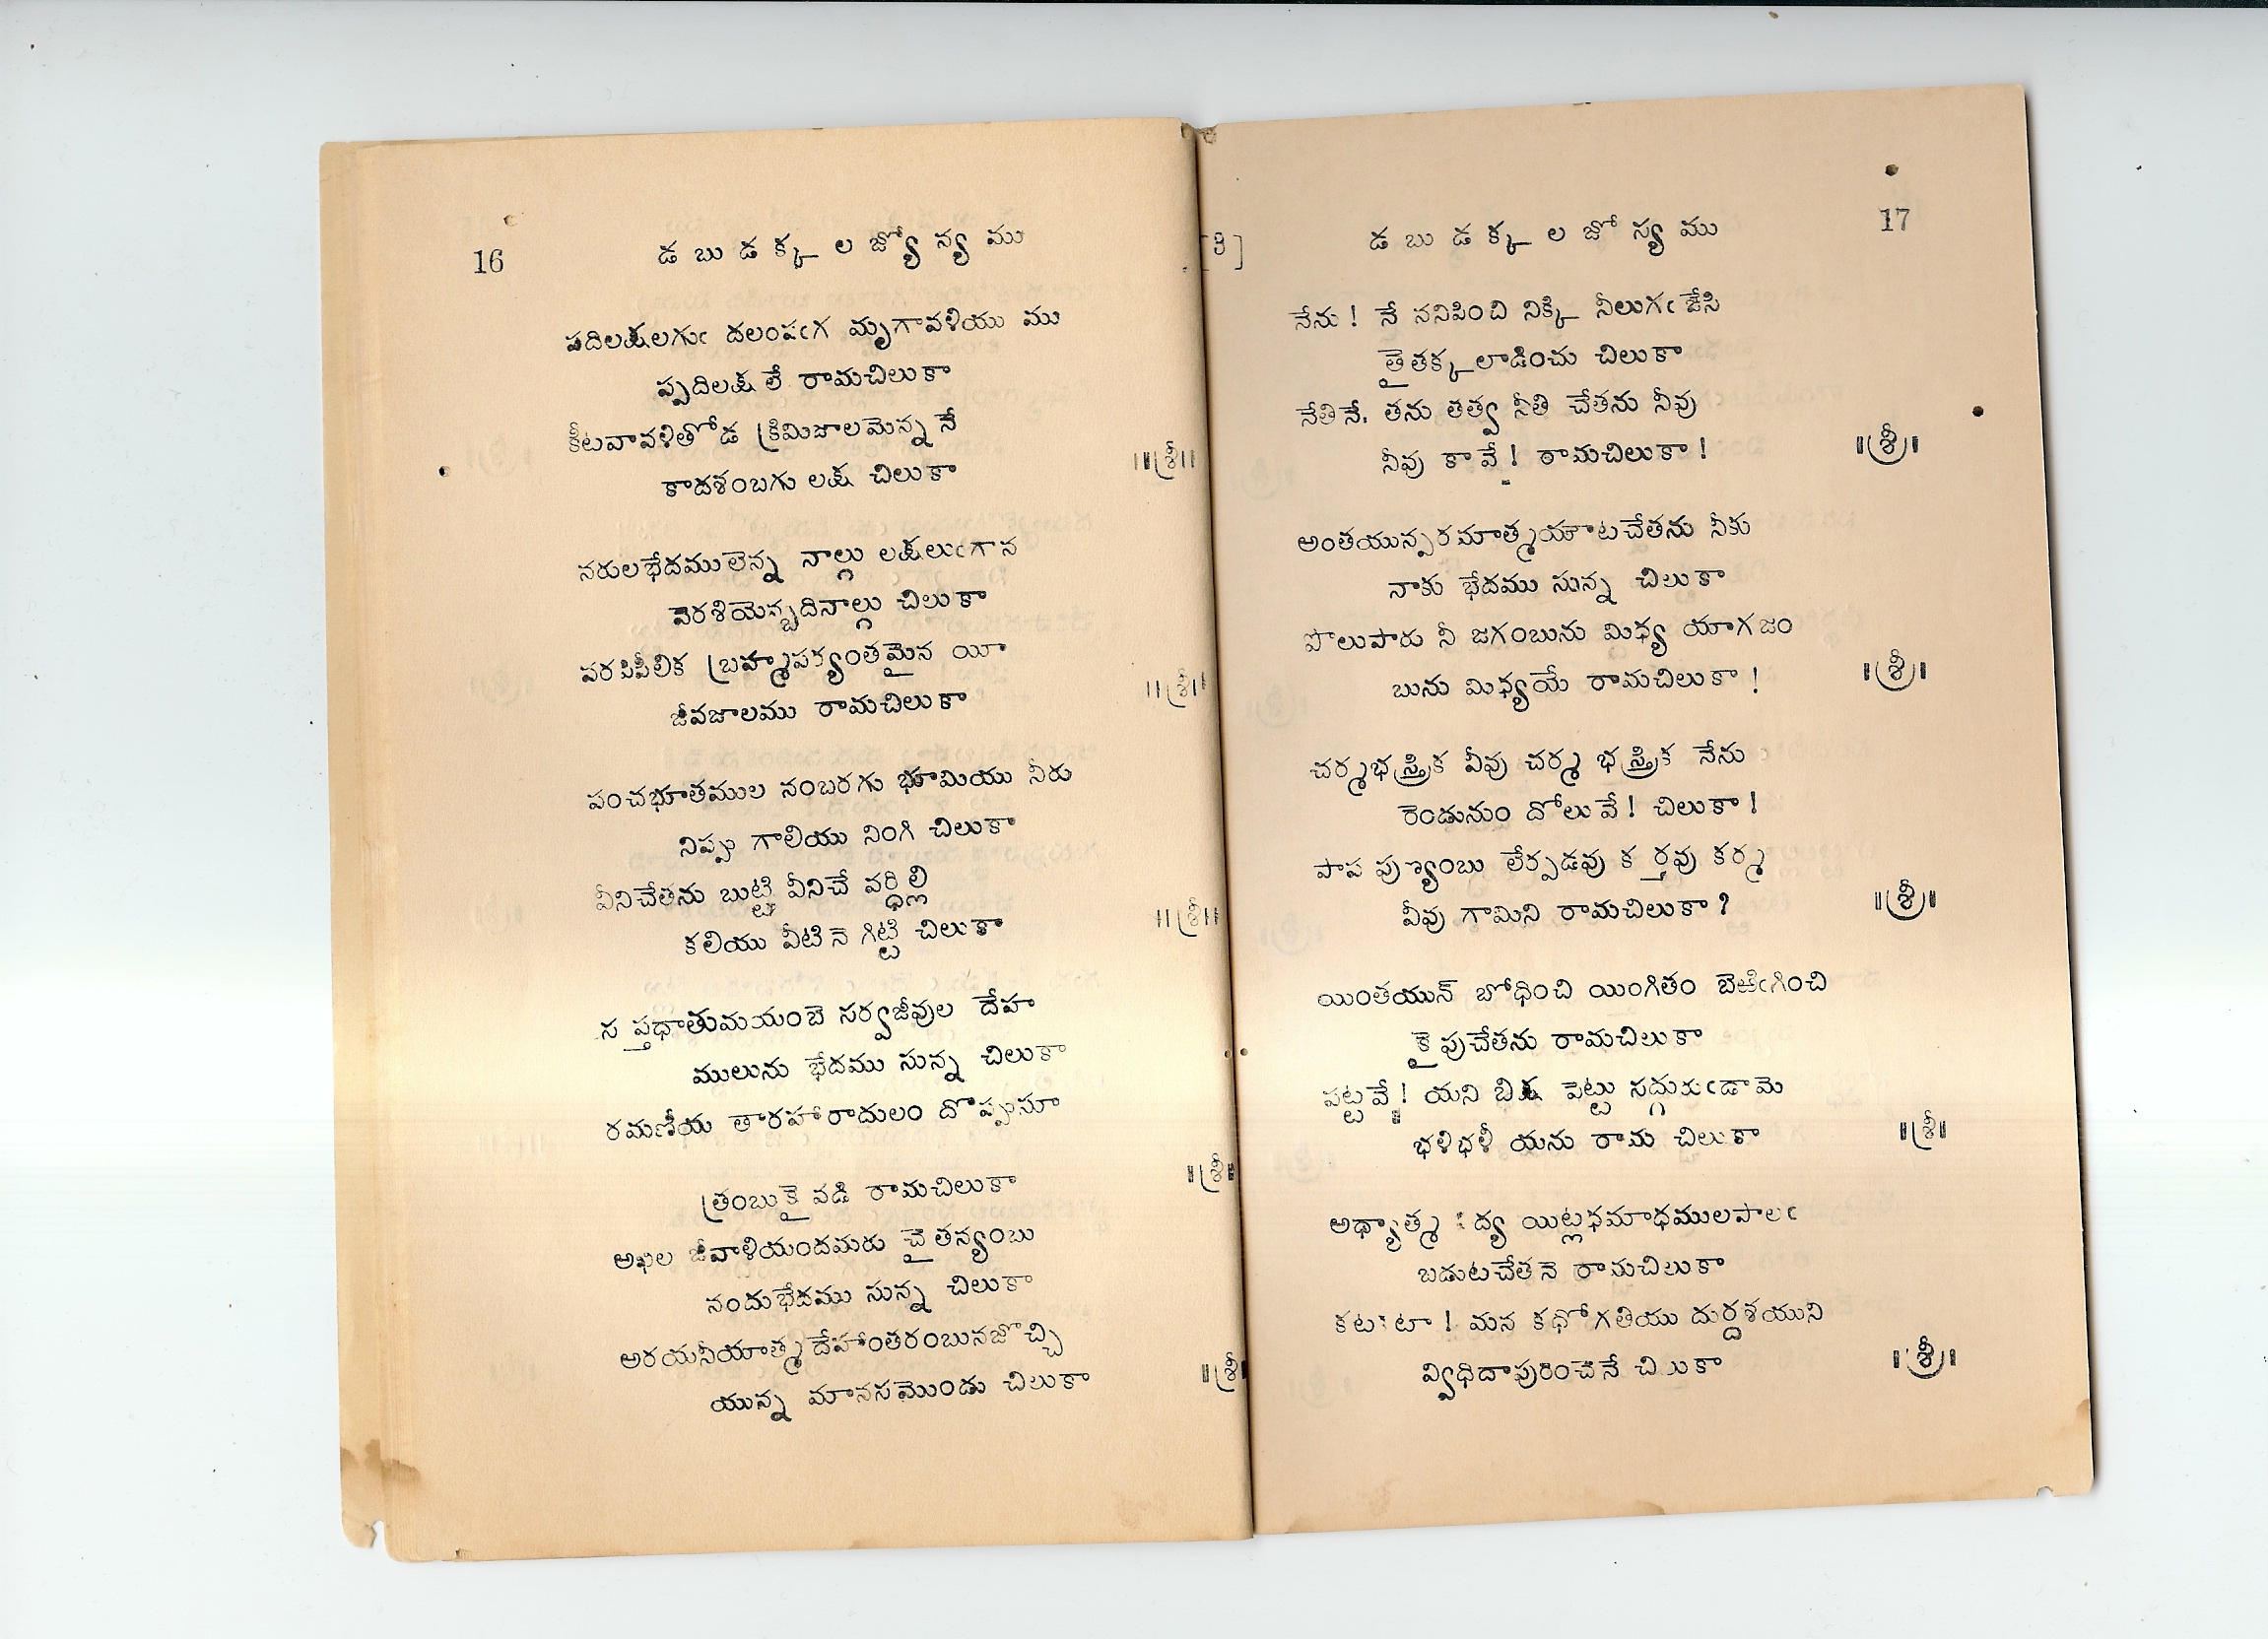 16 డ బు డ క్క ల జ్యో స్య ము
పదిలక్షలగుఁ దలంపఁగ మృగావళియు ము
ప్పదిలక్ష లే రామచిలుకా
కీటవావళితోడ క్రిమిజాలమెన్న నే
కాదశంబగు లక్ష చిలుకా ॥శ్రీ॥
నరులభేదములెన్న నాల్గు లక్షలుఁగాన
వెరశియెన్బదినాల్గు చిలుకా
పరపిపీలిక బ్రహ్మపర్యంతమైన యీ
జీవజాలము రామచిలుకా ॥శ్రీ॥
పంచభూతముల నంబరగు భూమియు నీరు
నిప్పు గాలియు నింగి చిలుకా
వీనిచేతను బుట్టి వీనిచే వర్ధిల్లి
కలియు వీటినె గిట్టి చిలుకా ॥శ్రీ॥
స ప్తధాతుమయంబె సర్వజీవుల దేహ
ములును భేదము సున్న చిలుకా
రమణీయ తారహారాదులం దొప్పుసూ
త్రంబుకై వడి రామచిలుకా ॥శ్రీ॥
అఖిల జీవాళియందమరు చై తన్యంబు
నందుభేదము సున్న చిలుకా
అరయనీయాత్మ దేహాంతరంబునజొచ్చి
యున్న మానసమొండు చిలుకా ॥శ్రీ॥
[3] డ బు డ క్క ల జో స్య ము 17
నేను ! నే ననిపించి నిక్కి నీలుగఁ జేసి
తైతక్కలాడించు చిలుకా
నేతినే. తను తత్వ నీతి చేతను నీవు
నీవు కావే ! రామచిలుకా ! ॥శ్రీ॥
అంతయున్పరమాత్మయౌటచేతను నీకు
నాకు భేదము సున్న చిలుకా
పొలుపారు నీ జగంబును మిధ్య యాగజం
బును మిధ్యయే రామచిలుకా ! ॥శ్రీ॥
చర్మభస్త్రిక వీవు చర్మ భస్త్రిక నేను
రెండునుం దోలువే ! చిలుకా !
పాప పుణ్యంబు లేర్పడవు క ర్తవు కర్మ
వీవు గామిని రామచిలుకా ? ॥శ్రీ॥
యింతయున్ బోధించి యింగితం బెఱిఁగించి
కై పుచేతను రామచిలుకా
పట్టవే ! యని భిక్ష పెట్టు సద్గురుఁడామె
భళిభళీ యను రామ చిలుకా ॥శ్రీ॥
అధ్యాత్మ ద్య యిట్లధమాధములపాలఁ
బడుటచేతనె రామచిలుకా
కటకటా ! మన కధోగతియు దుర్దశయుని
వ్విధిదాపురించెనే చిలుకా ॥శ్రీ॥